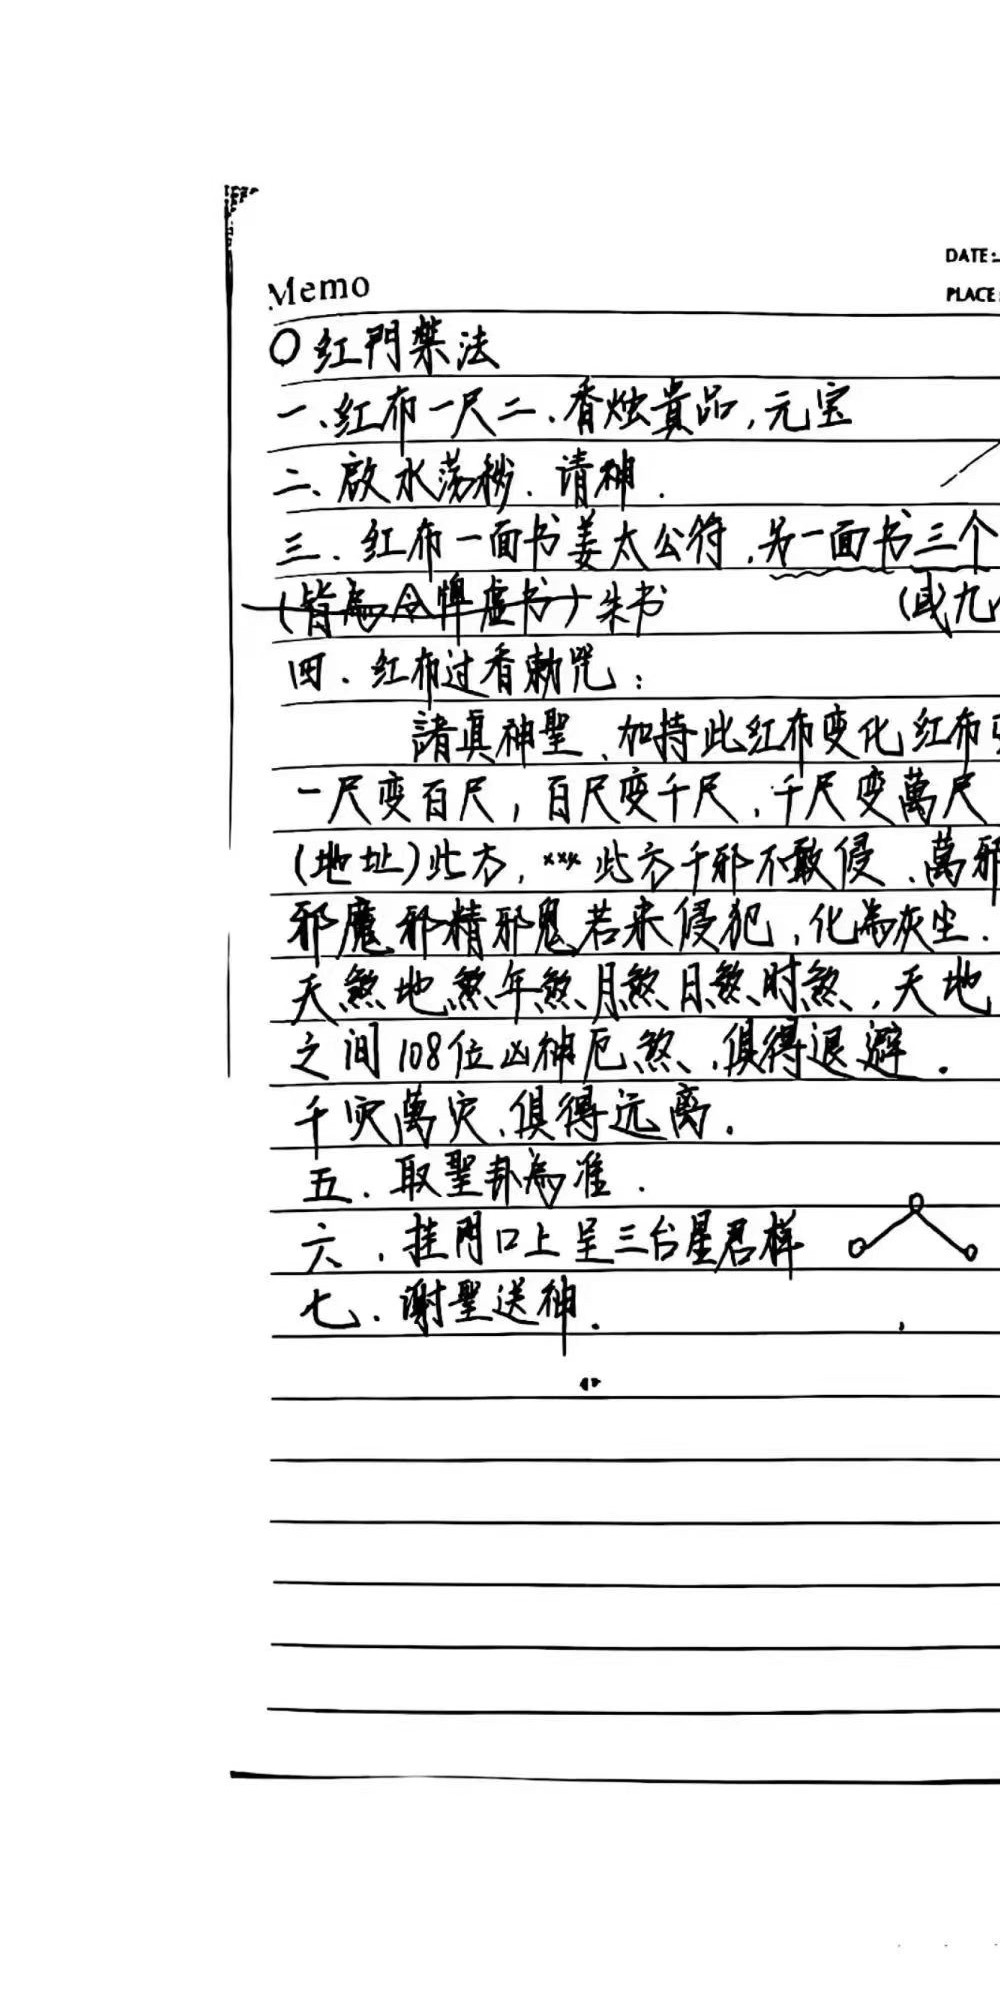 DATE:
Memo
PLACE:
〇红門禁法
一、红布一尺二、香烛貢品,元宝
二、啟水荡秽.请神.
三.红布一面书姜太公符,另一面书三个
(皆為令牌虚书)朱书 (或九
四.红布过香勅咒:
諸真神聖、加持此红布变化红布
一尺变百尺,百尺变千尺,千尺变萬尺
(地址)此方,×××此方千邪不敢侵、萬邪
邪魔邪精邪鬼若来侵犯,化為灰尘.
天煞地煞年煞月煞日煞时煞,天地
之间108位凶神厄煞、俱得退避.
千灾萬灾、俱得远离.
五.取聖卦為准.
六.挂門口上呈三台星君样
七.谢聖送神.